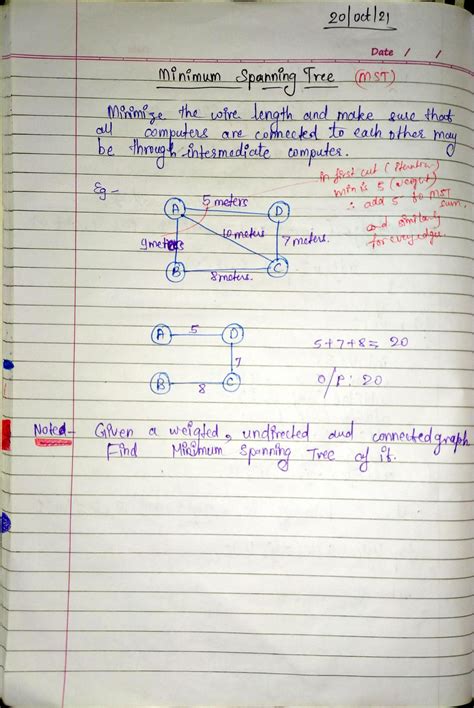 20/oct/21
Date / /
Minimum Spanning Tree (MST)
Minimize the wire length and make sure that
all computers are connected to each other may
be through intermediate computer.
Eg -
in first cut (iteration)
min is 5 (weight)
∴ add 5 to MST
sum.
and similarly
for every edge.
A 5 meters D
9 meters 10 meters 7 meters.
B 8 meters. C
A 5 D
5+7+8 = 20
7
B 8 C
O/P: 20
Note:- Given a weigted, undirected and connected graph
Find Minimum Spanning Tree of it.